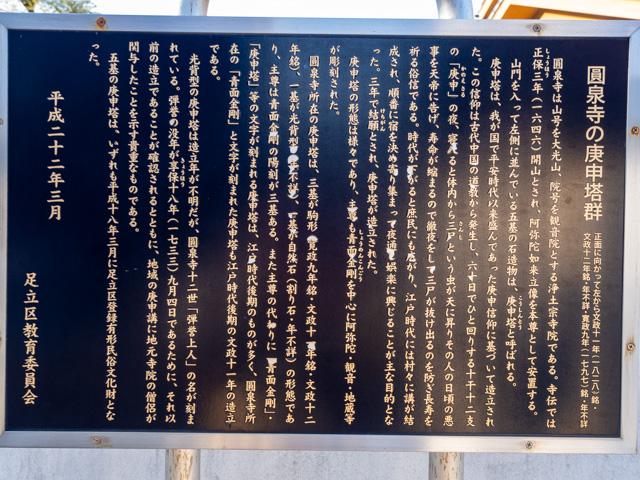 圓泉寺の庚申塔群
正面に向かって左から文政十一年(一八二八)銘・
文政十二年銘・年不詳・寛政九年(一七九七)銘・年不詳
圓泉寺は山号を大光山、院号を観音院とする浄土宗寺院である。寺伝では
正保三年(一六四六)開山とされ、阿弥陀如来立像を本尊として安置する。
山門を入って左側に並んでいる五基の石造物は、庚申塔と呼ばれる。
庚申塔は、我が国で平安時代以来盛んであった庚申信仰に基づいて造立され
た。この信仰は古代中国の道教から発生し、六十日でひと回りする十干十二支
の「庚申」の夜、寝ていると体内から三尸という虫が天に昇りその人の日頃の悪
事を天帝に告げ、寿命が縮まるので徹夜をして三尸が抜け出るのを防ぎ長寿を
祈る俗信である。時代が下がると庶民にも広がり、江戸時代には村々に講が結
成され、順番に宿を決め寄り集まって夜通し娯楽に興じることが主な目的とな
った。三年で結願とされ、庚申塔が造立された。
庚申塔の形態は様々であり、主尊も青面金剛を中心に阿弥陀・観音・地蔵等
が彫刻された。
圓泉寺所在の庚申塔は、三基が駒形(寛政九年銘・文政十一年銘・文政十二
年銘)、一基が光背型(年不詳)、一基が自然石(割り石・年不詳)の形態であ
り、主尊は青面金剛の陽刻が三基ある。また主尊の代わりに「青面金剛」・
「庚申塔」等の文字が刻まれる庚申塔は、江戸時代後期のものが多く、圓泉寺所
在の「青面金剛」と文字が刻まれた庚申塔も江戸時代後期の文政十一年の造立
である。
光背型の庚申塔は造立年が不明だが、圓泉寺十二世「弾誉上人」の名が刻ま
れている。弾誉の没年が享保十八年(一七三三)九月四日であるために、それ以
前の造立であることが確認されるとともに、地域の庚申講に地元寺院の僧侶が
関与したことを示す貴重なものである。
五基の庚申塔は、いずれも平成十八年三月に足立区登録有形民俗文化財とな
った。
平成二十二年三月
足立区教育委員会